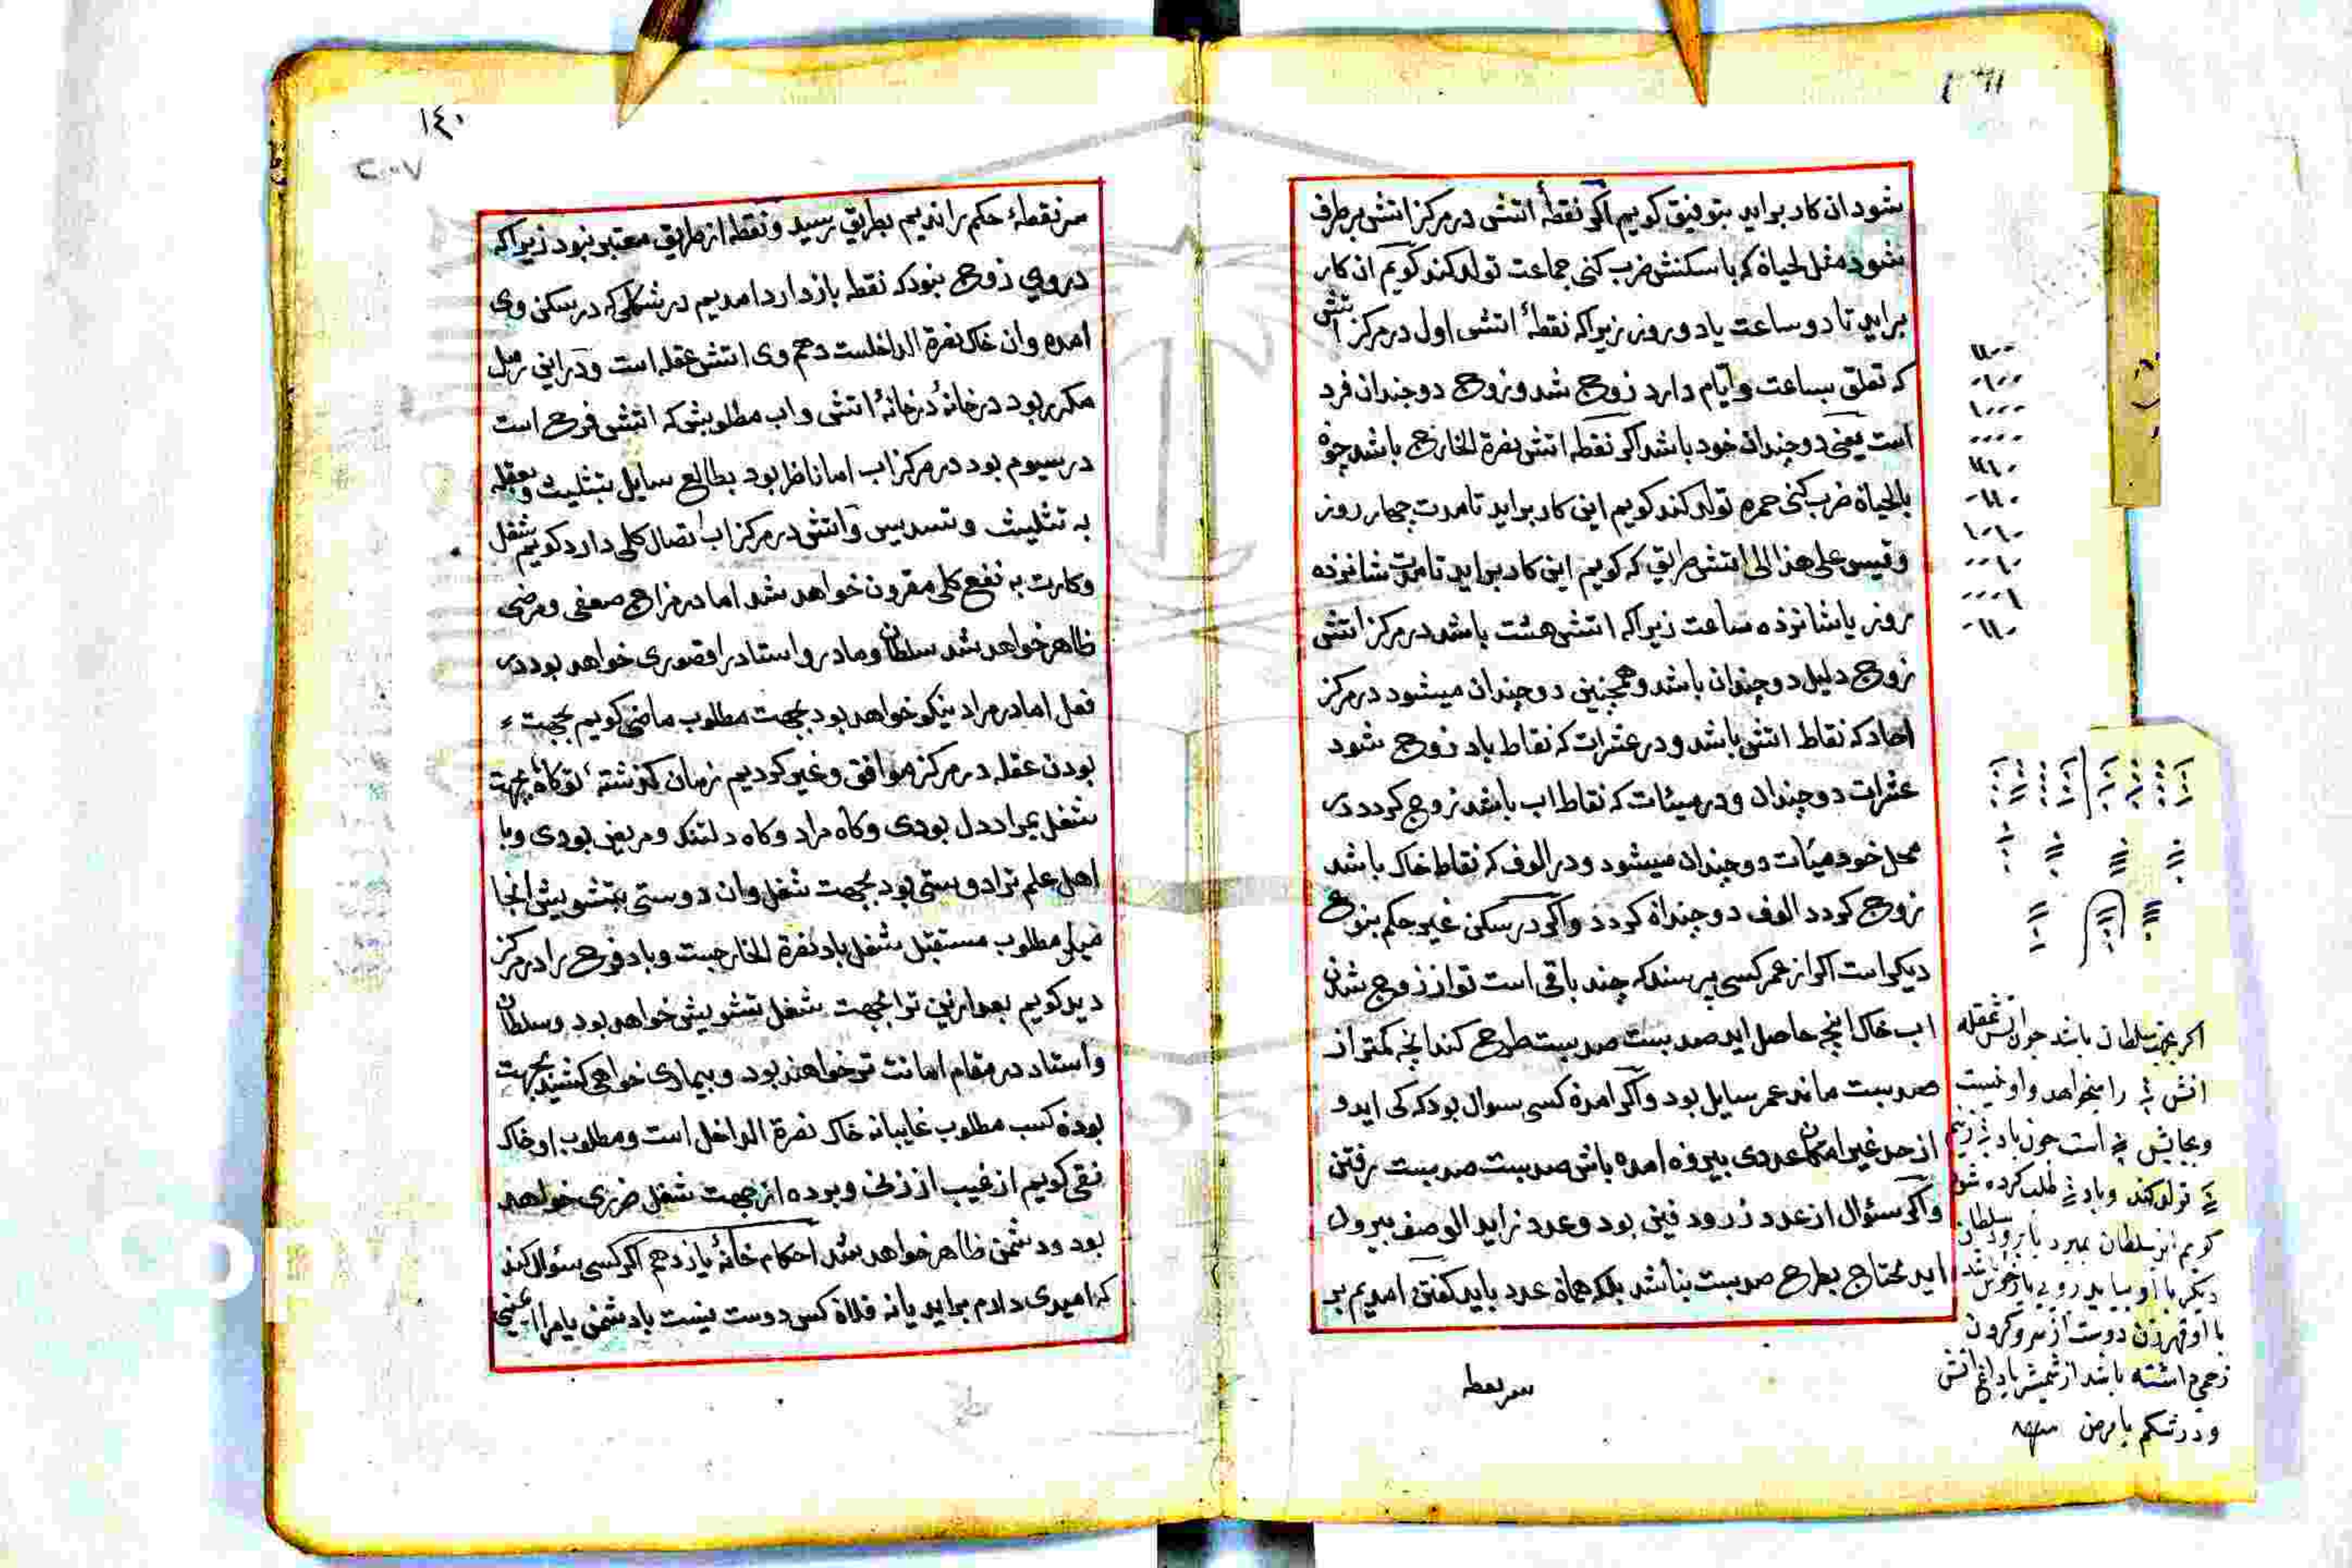 شود ان کار براید بتوفیق کویم اکر نقطهٔ اتشی در مرکز اتش برطرف
شود مثل لحیاة که با سکنش ضرب کنی جماعت تولد کند کویم ان کار
براید تا دو ساعت یا دو روز زیراکه نقطهٔ اتشی اول در مرکز اتش
که تعلق بساعت و ایام دارد زوج شد و زوج دو چندان فرد
است یعنی دو چندان خود باشد اکر نقطه اتش نصرة الخارج باشد چون
بالحیاة ضرب کنی حمره تولد کند کویم این کار براید تا مدت چهار روز
و قیس علی هذا الی اتش طریق که کویم این کار براید تا مدت شانزده
روز یا شانزده ساعت زیراکه اتشی هشت باشد در مرکز اتشی
زوج دلیل دو چندان باشد و همچنین دو چندان میشود در مرکز
احاد که نقاط اتشی باشد و در عشرات که نقاط باد زوج شود
عشرات دو چندان و در میئات که نقاط اب باشد زوج کردد در
محل خود میئات دو چندان میشود و در الوف که نقاط خاک باشد
زوج کردد الوف دو چندان کردد و اکر در سکنی غیر حکم بنوع
دیکر است اکر از عمر کسی پرسند که چند باقی است تو از زوج شدن
اب خاک انچه حاصل اید صد بیست صد بیست طرح کند انچه کمتر از
صد بیست ماند عمر سایل بود و اکر امدن کسی سوال بود که کی اید و
از حد غیر امکان عددی بیرون امده باش صد بیست صد بیست رفتن
و اکر سئوال از عدد زر و دفین بود و عدد زاید الوصف بیرون
اید محتاج بطرح صد بیست نباشد بلکه همان عدد باید کفتن امدیم بر
سر نقطه
اکر بجهت سلطان باشد چون اتش عقله
اتش را بخواهد و او نیست
کویم این سلطان بمیرد یا برود سلطان
با او قهر زن دوست از سر و کردن
زخمی داشته باشد از شمشیر یا داغ اتش
و در شکم با مرض
١٤٠
سر نقطهٔ حکم راندیم بطریق رسید و نقطه از طریق معتبر نبود زیراکه
در وی زوج نبود که نقطه باز دارد امدیم در شکلی که در سکن وی
امده و ان خاک نصرة الداخلست دهم وی اتش عقله است و در این رمل
مکرر بود در خانهٔ در خانهٔ اتشی و اب مطلوبش که اتش فرح است
در سیوم بود در مرکز اب اما ناظر بود بطالع سایل بتثلیث و بعقله
به تثلیث و تسدیس و اتش در مرکز اب اتصال کلی دارد کویم شغل
و کارت به نفع کلی مقرون خواهد شد اما در مزاج ضعفی و مرضی
ظاهر خواهد شد سلطان و مادر و استاد را قصوری خواهد بود در
فعل اما در مراد نیکو خواهد بود بجهت مطلوب ماضی کویم بجهت
بودن عقله در مرکز موافق و غیر کردیم زمان کذشته تو کاه بجهت
شغل بمراد دل بودی و کاه مراد و کاه دلتنک و مریض بودی و با
اهل علم ترا دوستی بود بجهت شغل و ان دوستی بتشویش انجا
مید و مطلوب مستقبل شغل باد نصرة الخارجست و باد فرح را در مرکز
دید کویم بعد ازین ترا بجهت شغل تشویش خواهد بود و سلطان
و استاد در مقام اهانت تو خواهند بود و بیماری خواهی کشید بجهت
بودن کسب مطلوب غایبانه خاک نصرة الداخل است و مطلوب او خاک
نقی کویم از غیب از زنی و برده از جهت شغل ضرری خواهد
بود و دشمن ظاهر خواهد شد احکام خانهٔ یازدهم اکر کسی سئوال کند
که امیدی دارم براید یا نه فلان کس دوست نیست یا دشمن یا مرا